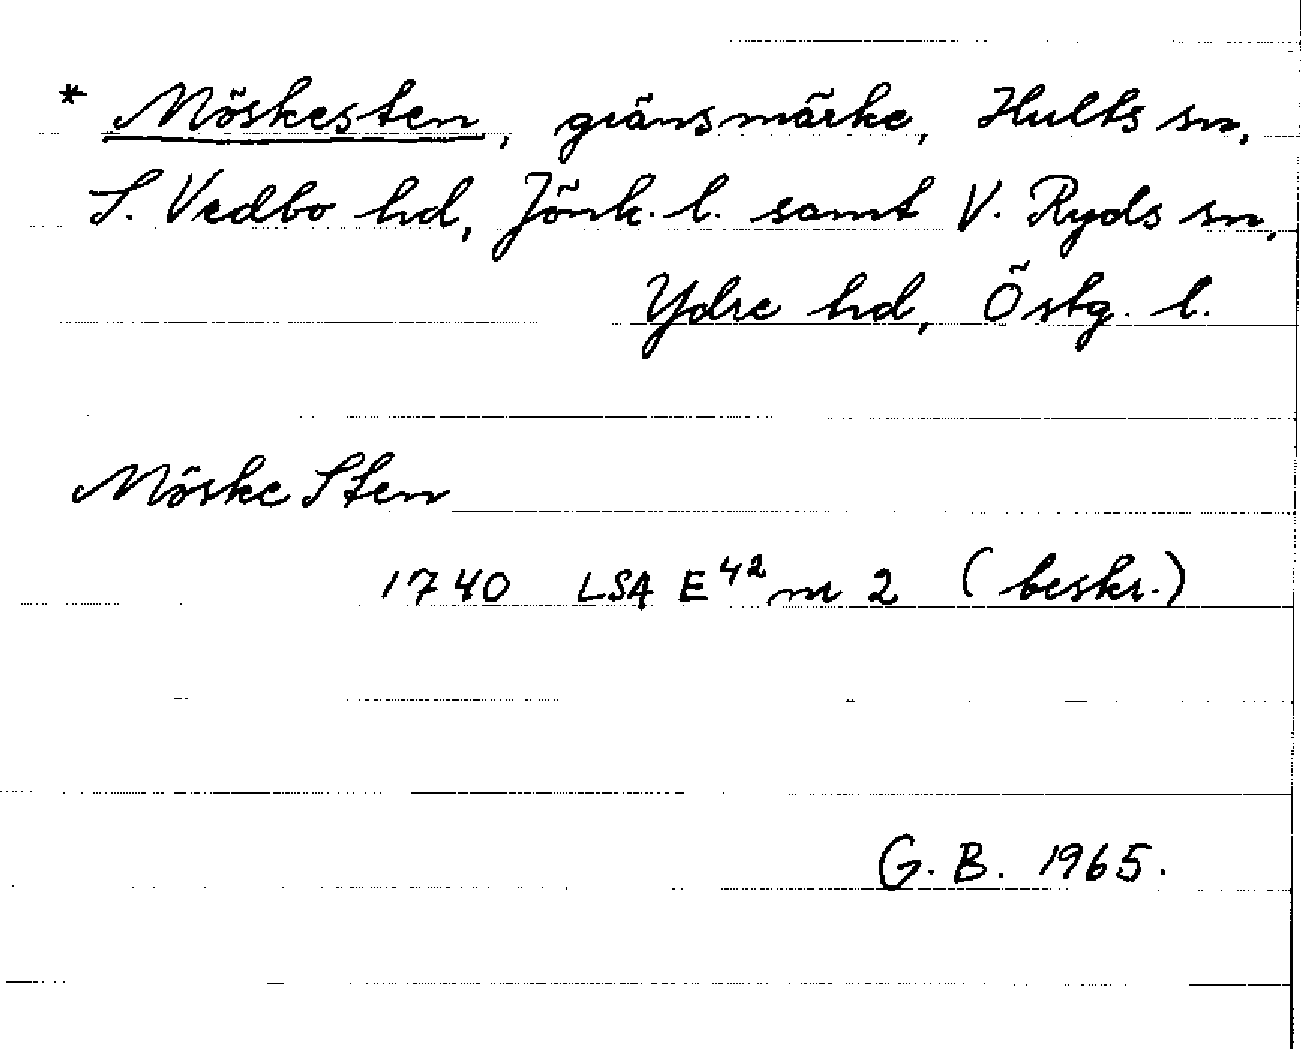 * Möskesten, gränsmärke, Hults sn,
S. Vedbo hd, Jönk. l. samt V. Ryds sn,
Ydre hd, Östg. l.
Möske Sten
1740 LSA E⁴² nr 2 (beskr.)
G. B. 1965.